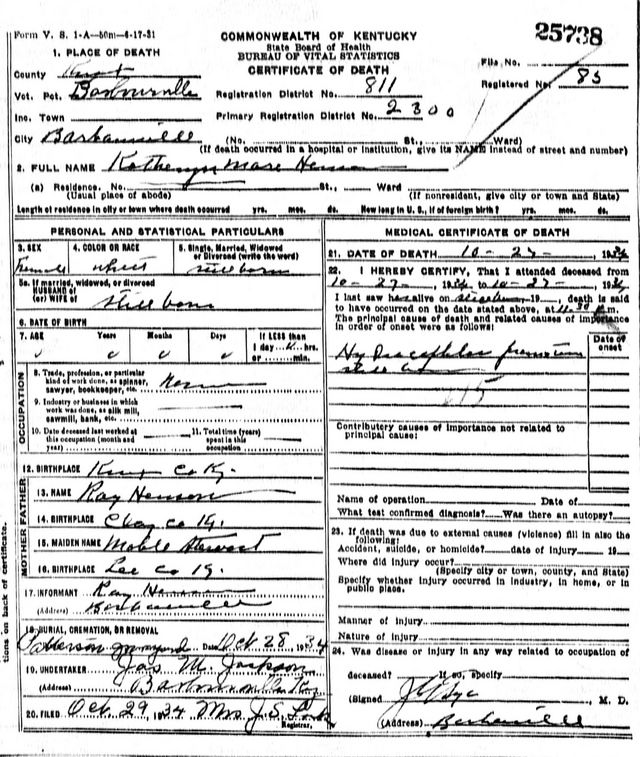 Form V. S. 1-A—50m—6-17-31
COMMONWEALTH OF KENTUCKY
State Board of Health
BUREAU OF VITAL STATISTICS
CERTIFICATE OF DEATH
25738
1. PLACE OF DEATH
County Knox
Vot. Pct. Barbourville
Inc. Town
City Barbourville
Registration District No. 811
Primary Registration District No. 2300
File No.
Registered No. 85
(No. St., Ward)
(If death occurred in a hospital or institution, give its NAME instead of street and number)
2. FULL NAME Katheryn Marie Henson
(a) Residence. No. St., Ward
(Usual place of abode) (If nonresident, give city or town and State)
Length of residence in city or town where death occurred yrs. mos. ds. How long in U. S., if of foreign birth? yrs. mos. ds.
PERSONAL AND STATISTICAL PARTICULARS
3. SEX 4. COLOR OR RACE 5. Single, Married, Widowed
or Divorced (write the word)
Female White still born
5a. If married, widowed, or divorced
HUSBAND of
(or) WIFE of still born
6. DATE OF BIRTH
7. AGE Years Months Days If LESS than
1 day hrs.
or min.
OCCUPATION
8. Trade, profession, or particular
kind of work done, as spinner,
sawyer, bookkeeper, etc.
9. Industry or business in which
work was done, as silk mill,
sawmill, bank, etc.
10. Date deceased last worked at
this occupation (month and
year)
11. Total time (years)
spent in this
occupation
12. BIRTHPLACE Knox Co Ky.
FATHER
13. NAME Ray Henson
14. BIRTHPLACE Clay Co Ky.
MOTHER
15. MAIDEN NAME Moble Stewart
16. BIRTHPLACE Lee Co Ky.
17. INFORMANT Ray Henson
(Address) Barbourville
18. BURIAL, CREMATION, OR REMOVAL
Patterson Date Oct 28 1934
19. UNDERTAKER Jas M. Jackson
(Address) Barbourville Ky
20. FILED Oct. 29 1934 Mrs J. S.
Registrar.
MEDICAL CERTIFICATE OF DEATH
21. DATE OF DEATH 10-27-, 1934
22. I HEREBY CERTIFY, That I attended deceased from
10-27-, 1934 to 10-27-, 1934
I last saw her alive on 19 , death is said
to have occurred on the date stated above, at 4:30 P.m.
The principal cause of death and related causes of importance
in order of onset were as follows:
Date of
onset
Hydrocephalus premature
still born
Contributory causes of importance not related to
principal cause:
Name of operation Date of
What test confirmed diagnosis? Was there an autopsy?
23. If death was due to external causes (violence) fill in also the
following:
Accident, suicide, or homicide? date of injury 19
Where did injury occur?
(Specify city or town, county, and State)
Specify whether injury occurred in industry, in home, or in
public place.
Manner of injury
Nature of injury
24. Was disease or injury in any way related to occupation of
deceased? If so, specify
(Signed) M. D.
(Address) Barbourville
tions on back of certificate.